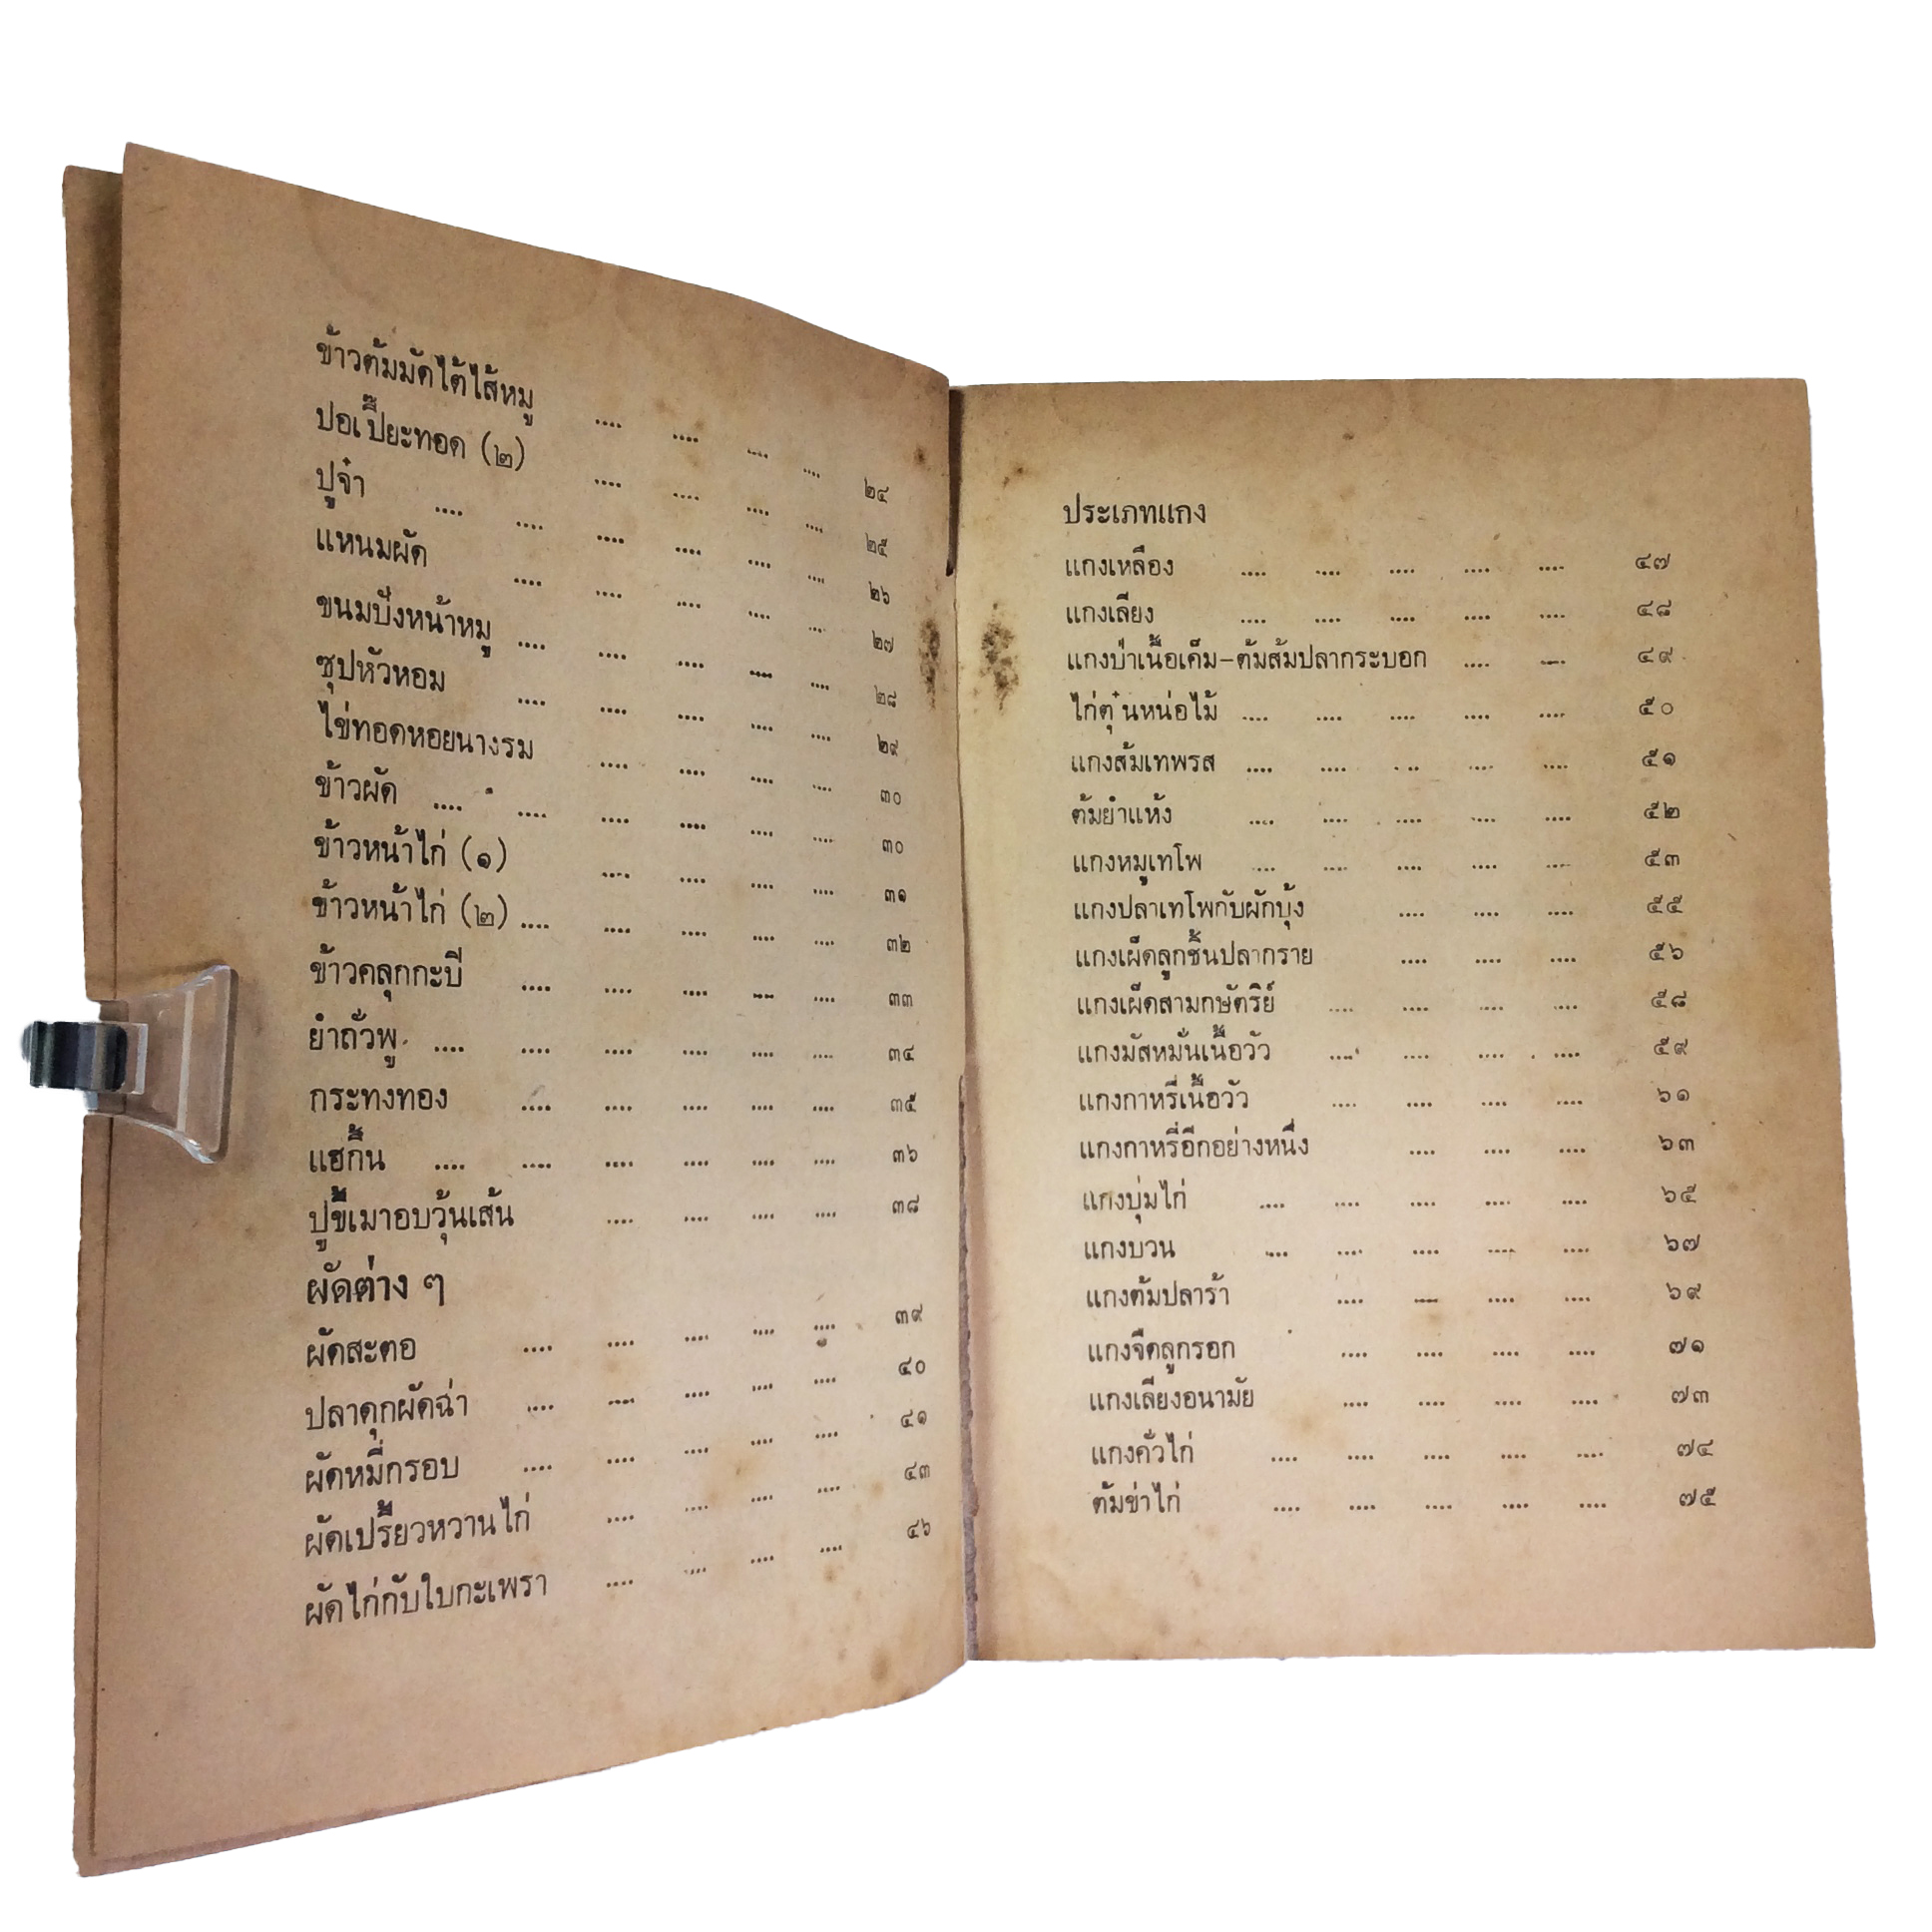 ข้าวต้มมัดไต้ไส้หมู .... .... .... .... ๒๔
ปอเปี๊ยะทอด (๒) .... .... .... .... ๒๕
ปูจ๋า .... .... .... .... .... .... ๒๖
แหนมผัด .... .... .... .... .... ๒๗
ขนมปังหน้าหมู .... .... .... .... .... ๒๘
ซุปหัวหอม .... .... .... .... .... ๒๙
ไข่ทอดหอยนางรม .... .... .... .... ๓๐
ข้าวผัด .... .... .... .... .... .... ๓๐
ข้าวหน้าไก่ (๑) .... .... .... .... ๓๑
ข้าวหน้าไก่ (๒) .... .... .... .... .... ๓๒
ข้าวคลุกกะปี .... .... .... .... .... ๓๓
ยำถั่วพู .... .... .... .... .... .... ๓๔
กระทงทอง .... .... .... .... .... ๓๕
แฮ่กึ้น .... .... .... .... .... .... ๓๖
ปูขี้เมาอบวุ้นเส้น .... .... .... .... ๓๘
ผัดต่าง ๆ
ผัดสะตอ .... .... .... .... .... ๓๙
ปลาดุกผัดฉ่า .... .... .... .... .... ๔๐
ผัดหมี่กรอบ .... .... .... .... .... ๔๑
ผัดเปรี้ยวหวานไก่ .... .... .... .... ๔๓
ผัดไก่กับใบกะเพรา .... .... .... .... ๔๖
ประเภทแกง
แกงเหลือง .... .... .... .... .... ๔๗
แกงเลียง .... .... .... .... .... ๔๘
แกงป่าเนื้อเค็ม-ต้มส้มปลากระบอก .... .... ๔๙
ไก่ตุ๋นหน่อไม้ .... .... .... .... .... ๕๐
แกงส้มเทพรส .... .... .... .... .... ๕๑
ต้มยำแห้ง .... .... .... .... .... ๕๒
แกงหมูเทโพ .... .... .... .... .... ๕๓
แกงปลาเทโพกับผักบุ้ง .... .... .... ๕๕
แกงเผ็ดลูกชิ้นปลากราย .... .... .... ๕๖
แกงเผ็ดสามกษัตริย์ .... .... .... .... ๕๘
แกงมัสหมั่นเนื้อวัว .... .... .... .... ๕๙
แกงกาหรี่เนื้อวัว .... .... .... .... ๖๑
แกงกาหรี่อีกอย่างหนึ่ง .... .... .... ๖๓
แกงบุ่มไก่ .... .... .... .... .... ๖๕
แกงบวน .... .... .... .... .... ๖๗
แกงต้มปลาร้า .... .... .... .... ๖๙
แกงจืดลูกรอก .... .... .... .... ๗๑
แกงเลียงอนามัย .... .... .... .... ๗๓
แกงคั่วไก่ .... .... .... .... .... ๗๔
ต้มข่าไก่ .... .... .... .... .... ๗๕